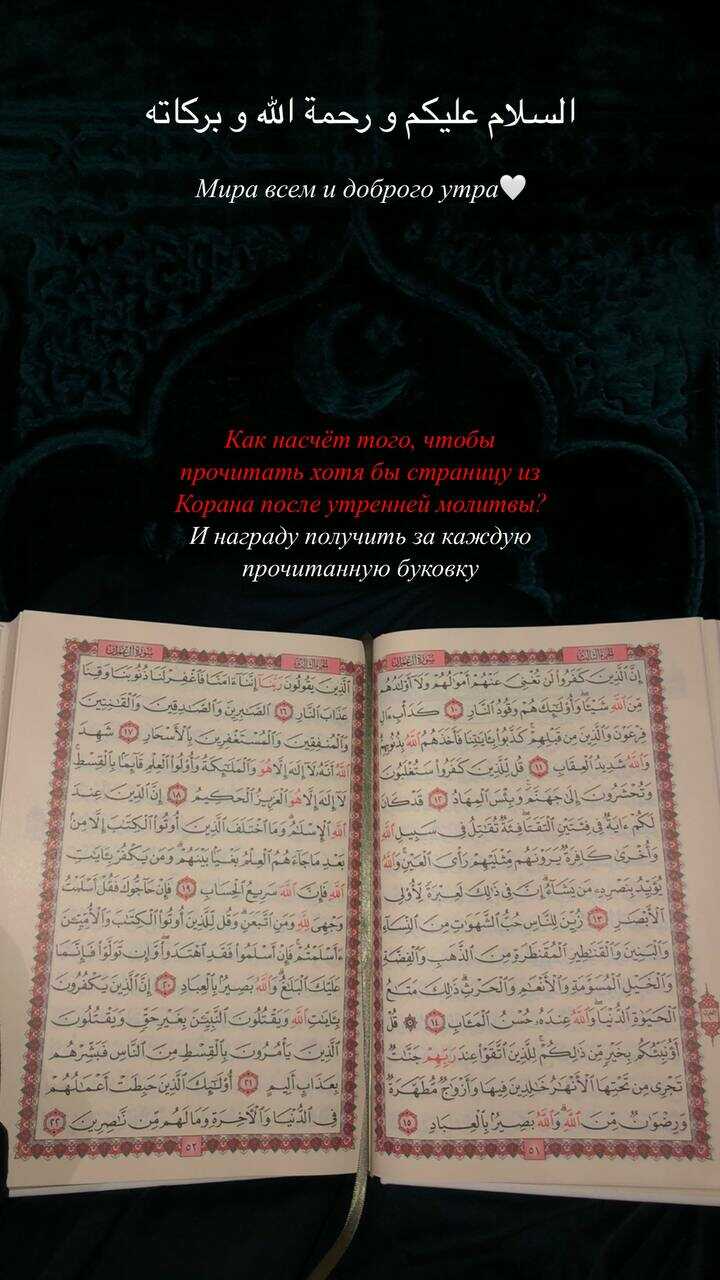 السلام عليكم و رحمة الله و بركاته
Мира всем и доброго утра🤍
Как насчёт того, чтобы
прочитать хотя бы страницу из
Корана после утренней молитвы?
И награду получить за каждую
прочитанную буковку
الجزء الثالث سورة آل عمران
إِنَّ ٱلَّذِينَ كَفَرُوا۟ لَن تُغْنِىَ عَنْهُمْ أَمْوَٰلُهُمْ وَلَآ أَوْلَٰدُهُم
مِّنَ ٱللَّهِ شَيْـًٔا وَأُو۟لَٰٓئِكَ هُمْ وَقُودُ ٱلنَّارِ ١٠ كَدَأْبِ ءَالِ
فِرْعَوْنَ وَٱلَّذِينَ مِن قَبْلِهِمْ كَذَّبُوا۟ بِـَٔايَٰتِنَا فَأَخَذَهُمُ ٱللَّهُ بِذُنُوبِهِمْ
وَٱللَّهُ شَدِيدُ ٱلْعِقَابِ ١١ قُل لِّلَّذِينَ كَفَرُوا۟ سَتُغْلَبُونَ
وَتُحْشَرُونَ إِلَىٰ جَهَنَّمَ وَبِئْسَ ٱلْمِهَادُ ١٢ قَدْ كَانَ
لَكُمْ ءَايَةٌ فِى فِئَتَيْنِ ٱلْتَقَتَا فِئَةٌ تُقَٰتِلُ فِى سَبِيلِ ٱللَّهِ
وَأُخْرَىٰ كَافِرَةٌ يَرَوْنَهُم مِّثْلَيْهِمْ رَأْىَ ٱلْعَيْنِ وَٱللَّهُ
يُؤَيِّدُ بِنَصْرِهِۦ مَن يَشَآءُ إِنَّ فِى ذَٰلِكَ لَعِبْرَةً لِّأُو۟لِى
ٱلْأَبْصَٰرِ ١٣ زُيِّنَ لِلنَّاسِ حُبُّ ٱلشَّهَوَٰتِ مِنَ ٱلنِّسَآءِ
وَٱلْبَنِينَ وَٱلْقَنَٰطِيرِ ٱلْمُقَنطَرَةِ مِنَ ٱلذَّهَبِ وَٱلْفِضَّةِ
وَٱلْخَيْلِ ٱلْمُسَوَّمَةِ وَٱلْأَنْعَٰمِ وَٱلْحَرْثِ ذَٰلِكَ مَتَٰعُ
ٱلْحَيَوٰةِ ٱلدُّنْيَا وَٱللَّهُ عِندَهُۥ حُسْنُ ٱلْمَـَٔابِ ١٤ ۞ قُلْ
أَؤُنَبِّئُكُم بِخَيْرٍ مِّن ذَٰلِكُمْ لِلَّذِينَ ٱتَّقَوْا۟ عِندَ رَبِّهِمْ جَنَّٰتٌ
تَجْرِى مِن تَحْتِهَا ٱلْأَنْهَٰرُ خَٰلِدِينَ فِيهَا وَأَزْوَٰجٌ مُّطَهَّرَةٌ
وَرِضْوَٰنٌ مِّنَ ٱللَّهِ وَٱللَّهُ بَصِيرٌۢ بِٱلْعِبَادِ ١٥
٥١
الجزء الثالث سورة آل عمران
ٱلَّذِينَ يَقُولُونَ رَبَّنَآ إِنَّنَآ ءَامَنَّا فَٱغْفِرْ لَنَا ذُنُوبَنَا وَقِنَا
عَذَابَ ٱلنَّارِ ١٦ ٱلصَّٰبِرِينَ وَٱلصَّٰدِقِينَ وَٱلْقَٰنِتِينَ
وَٱلْمُنفِقِينَ وَٱلْمُسْتَغْفِرِينَ بِٱلْأَسْحَارِ ١٧ شَهِدَ
ٱللَّهُ أَنَّهُۥ لَآ إِلَٰهَ إِلَّا هُوَ وَٱلْمَلَٰٓئِكَةُ وَأُو۟لُوا۟ ٱلْعِلْمِ قَآئِمًۢا بِٱلْقِسْطِ
لَآ إِلَٰهَ إِلَّا هُوَ ٱلْعَزِيزُ ٱلْحَكِيمُ ١٨ إِنَّ ٱلدِّينَ عِندَ
ٱللَّهِ ٱلْإِسْلَٰمُ وَمَا ٱخْتَلَفَ ٱلَّذِينَ أُوتُوا۟ ٱلْكِتَٰبَ إِلَّا مِنۢ
بَعْدِ مَا جَآءَهُمُ ٱلْعِلْمُ بَغْيًۢا بَيْنَهُمْ وَمَن يَكْفُرْ بِـَٔايَٰتِ
ٱللَّهِ فَإِنَّ ٱللَّهَ سَرِيعُ ٱلْحِسَابِ ١٩ فَإِنْ حَآجُّوكَ فَقُلْ أَسْلَمْتُ
وَجْهِىَ لِلَّهِ وَمَنِ ٱتَّبَعَنِ وَقُل لِّلَّذِينَ أُوتُوا۟ ٱلْكِتَٰبَ وَٱلْأُمِّيِّۦنَ
ءَأَسْلَمْتُمْ فَإِنْ أَسْلَمُوا۟ فَقَدِ ٱهْتَدَوا۟ وَّإِن تَوَلَّوْا۟ فَإِنَّمَا
عَلَيْكَ ٱلْبَلَٰغُ وَٱللَّهُ بَصِيرٌۢ بِٱلْعِبَادِ ٢٠ إِنَّ ٱلَّذِينَ يَكْفُرُونَ
بِـَٔايَٰتِ ٱللَّهِ وَيَقْتُلُونَ ٱلنَّبِيِّۦنَ بِغَيْرِ حَقٍّ وَيَقْتُلُونَ
ٱلَّذِينَ يَأْمُرُونَ بِٱلْقِسْطِ مِنَ ٱلنَّاسِ فَبَشِّرْهُم
بِعَذَابٍ أَلِيمٍ ٢١ أُو۟لَٰٓئِكَ ٱلَّذِينَ حَبِطَتْ أَعْمَٰلُهُمْ
فِى ٱلدُّنْيَا وَٱلْءَاخِرَةِ وَمَا لَهُم مِّن نَّٰصِرِينَ ٢٢
٥٢